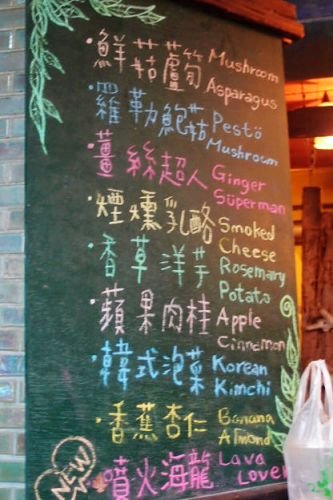 ·鮮菇蘆筍 Mushroom
Asparagus
·羅勒鮑菇 Pestö
Mushroom
·薑絲超人 Ginger
Süperman
·煙燻乳酪 Smoked
Cheese
·香草洋芋 Rosemary
Potato
·蘋果肉桂 Apple
Cinnamon
·韓式泡菜 Korean
Kimchi
·香蕉杏仁 Banana
Almond
NEW
·噴火海龍 Lava
Lover